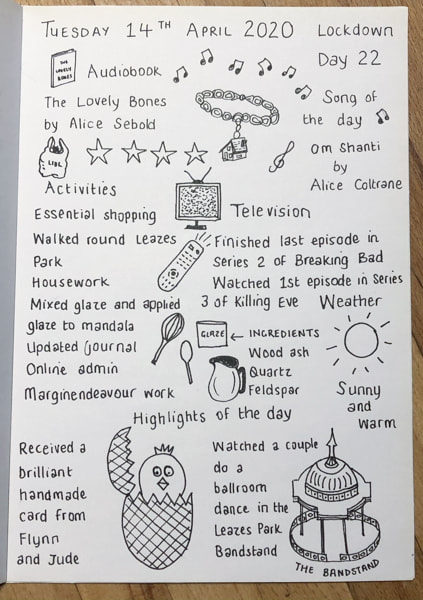 TUESDAY 14TH APRIL 2020 Lockdown
Day 22
THE LOVELY BONES
Audiobook
The Lovely Bones
by Alice Sebold
Song of
the day
Om Shanti
by
Alice Coltrane
LIDL
Activities
Essential shopping
Walked round Leazes
Park
Housework
Mixed glaze and applied
glaze to mandala
Updated journal
Online admin
Marginendeavour work
Television
Finished last episode in
Series 2 of Breaking Bad
Watched 1st episode in Series
3 of Killing Eve
Weather
Sunny
and
warm
GLAZE ← INGREDIENTS
Wood ash
Quartz
Feldspar
Highlights of the day
Received a
brilliant
handmade
card from
Flynn
and Jude
Watched a couple
do a
ballroom
dance in the
Leazes Park
Bandstand
THE BANDSTAND